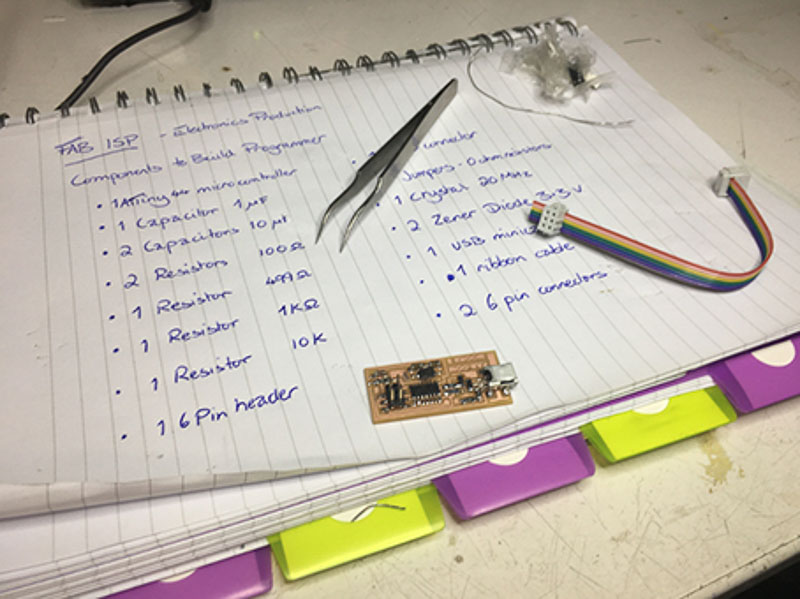 FAB ISP - Electronics Production
Components to Build Programmer
• 1 ATtiny 44 microcontroller
• 1 Capacitor 1 µF
• 2 Capacitors 10 µf
• 2 Resistors 100Ω
• 1 Resistor 499Ω
• 1 Resistor 1KΩ
• 1 Resistor 10K
• 1 6 Pin header
• connector
Jumpers - 0 ohm resistors
• 1 Crystal 20 MHz
• 2 Zener Diode 3.3 V
• 1 USB
• 1 ribbon cable
• 2 6 pin connectors